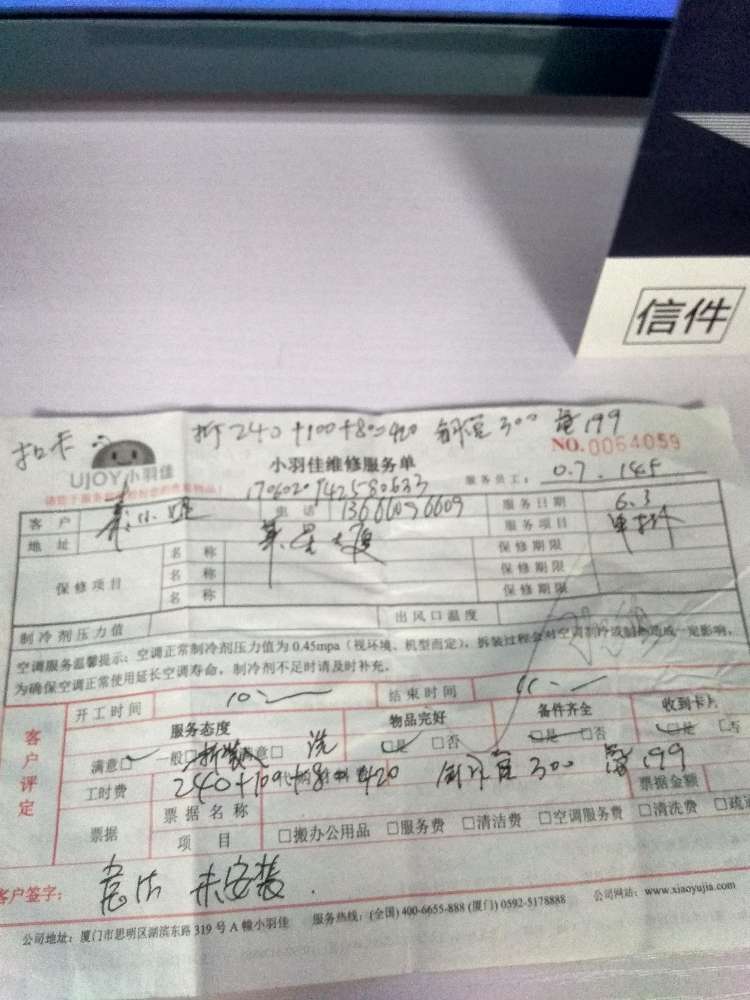 信件
扣卡
拆240+100+80=420 制冰宜300 蓝199
NO.0064059
UJOY小羽佳
小羽佳维修服务单
服务员工:
170602
客户 电话 13666096609 服务日期 6.3
地址 服务项目 单拆
保修项目 名称 保修期限
名称 保修期限
名称 保修期限
制冷剂压力值 出风口温度
空调服务温馨提示:空调正常制冷剂压力值为0.45mpa(视环境、机型而定),拆装过程会对空调制冷或制热造成一定影响,
为确保空调正常使用延长空调寿命,制冷剂不足时请及时补充。
开工时间 结束时间
客户评定
服务态度 物品完好 备件齐全 收到卡片
满意□ 一般□ 拆装 满意□ 洗 □是 □否 □是 □否 □是 □否
工时费 240+100+80 420 300 199
票据 票据名称 票据金额
项目 □搬办公用品 □服务费 □清洁费 □空调服务费 □清洗费 □疏通
客户签字: 未安装
公司地址:厦门市思明区湖滨东路319号A幢小羽佳 服务热线:(全国)400-6655-888 (厦门)0592-5178888 公司网站:www.xiaoyujia.com